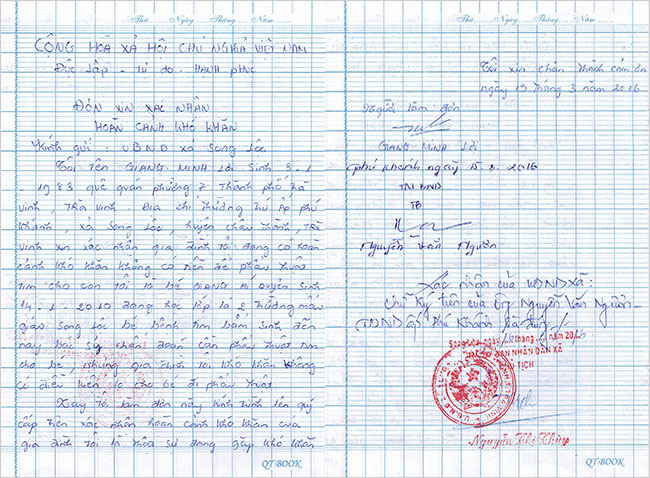 Thứ Ngày Tháng Năm
CỘNG HOÀ XÃ HỘI CHỦ NGHĨA VIỆT NAM
Độc lập - Tự do - HẠNH PHÚC
ĐƠN XIN XÁC NHẬN
HOÀN CẢNH KHÓ KHĂN
Kính gửi : UBND xã Song Lộc
Tôi Tên GIANG MINH Lời Sinh 3-1
-1983 quê quán phường 7 Thành phố Trà
vinh, Trà Vinh Địa chỉ thường trú Ấp phú
khánh, xã Song Lộc, huyện châu Thành, Trà
vinh xin xác nhận gia đình tôi đang có hoàn
cảnh khó khăn không có tiền để phẫu thuật
tim cho con tôi là bé GIANG Mĩ Duyên sinh
14-1-2010 đang học lớp lá 2 trường mẫu
giáo Song Lộc bé bệnh tim bẩm sinh đến
nay bác sỹ chẩn đoán cần phẫu thuật tim
cho bé, nhưng gia đình tôi khó khăn không
có điều kiện lo cho bé đi phẫu thuật
Nay tôi làm đơn này kính trình lên quý
cấp trên xác nhận hoàn cảnh khó khăn của
gia đình tôi là thừa sự đang gặp khó khăn
QT-BOOK
Thứ Ngày Tháng Năm
Tôi xin chân thành cảm ơn
ngày 15 tháng 3 năm 2016
người làm đơn
GIANG MINH Lời
phú khánh ngày 15.3.2016
TM BND
TB
Nguyễn Văn Nguơn
Xác nhận của UBND Xã:
Chữ ký trên của ông Nguyễn Văn Nguơn -
ấp Phú Khánh là đúng
Song Lộc, ngày tháng năm 2016
ỦY BAN NHÂN DÂN XÃ
TỊCH
Nguyễn Thị Thùy
QT-BOOK